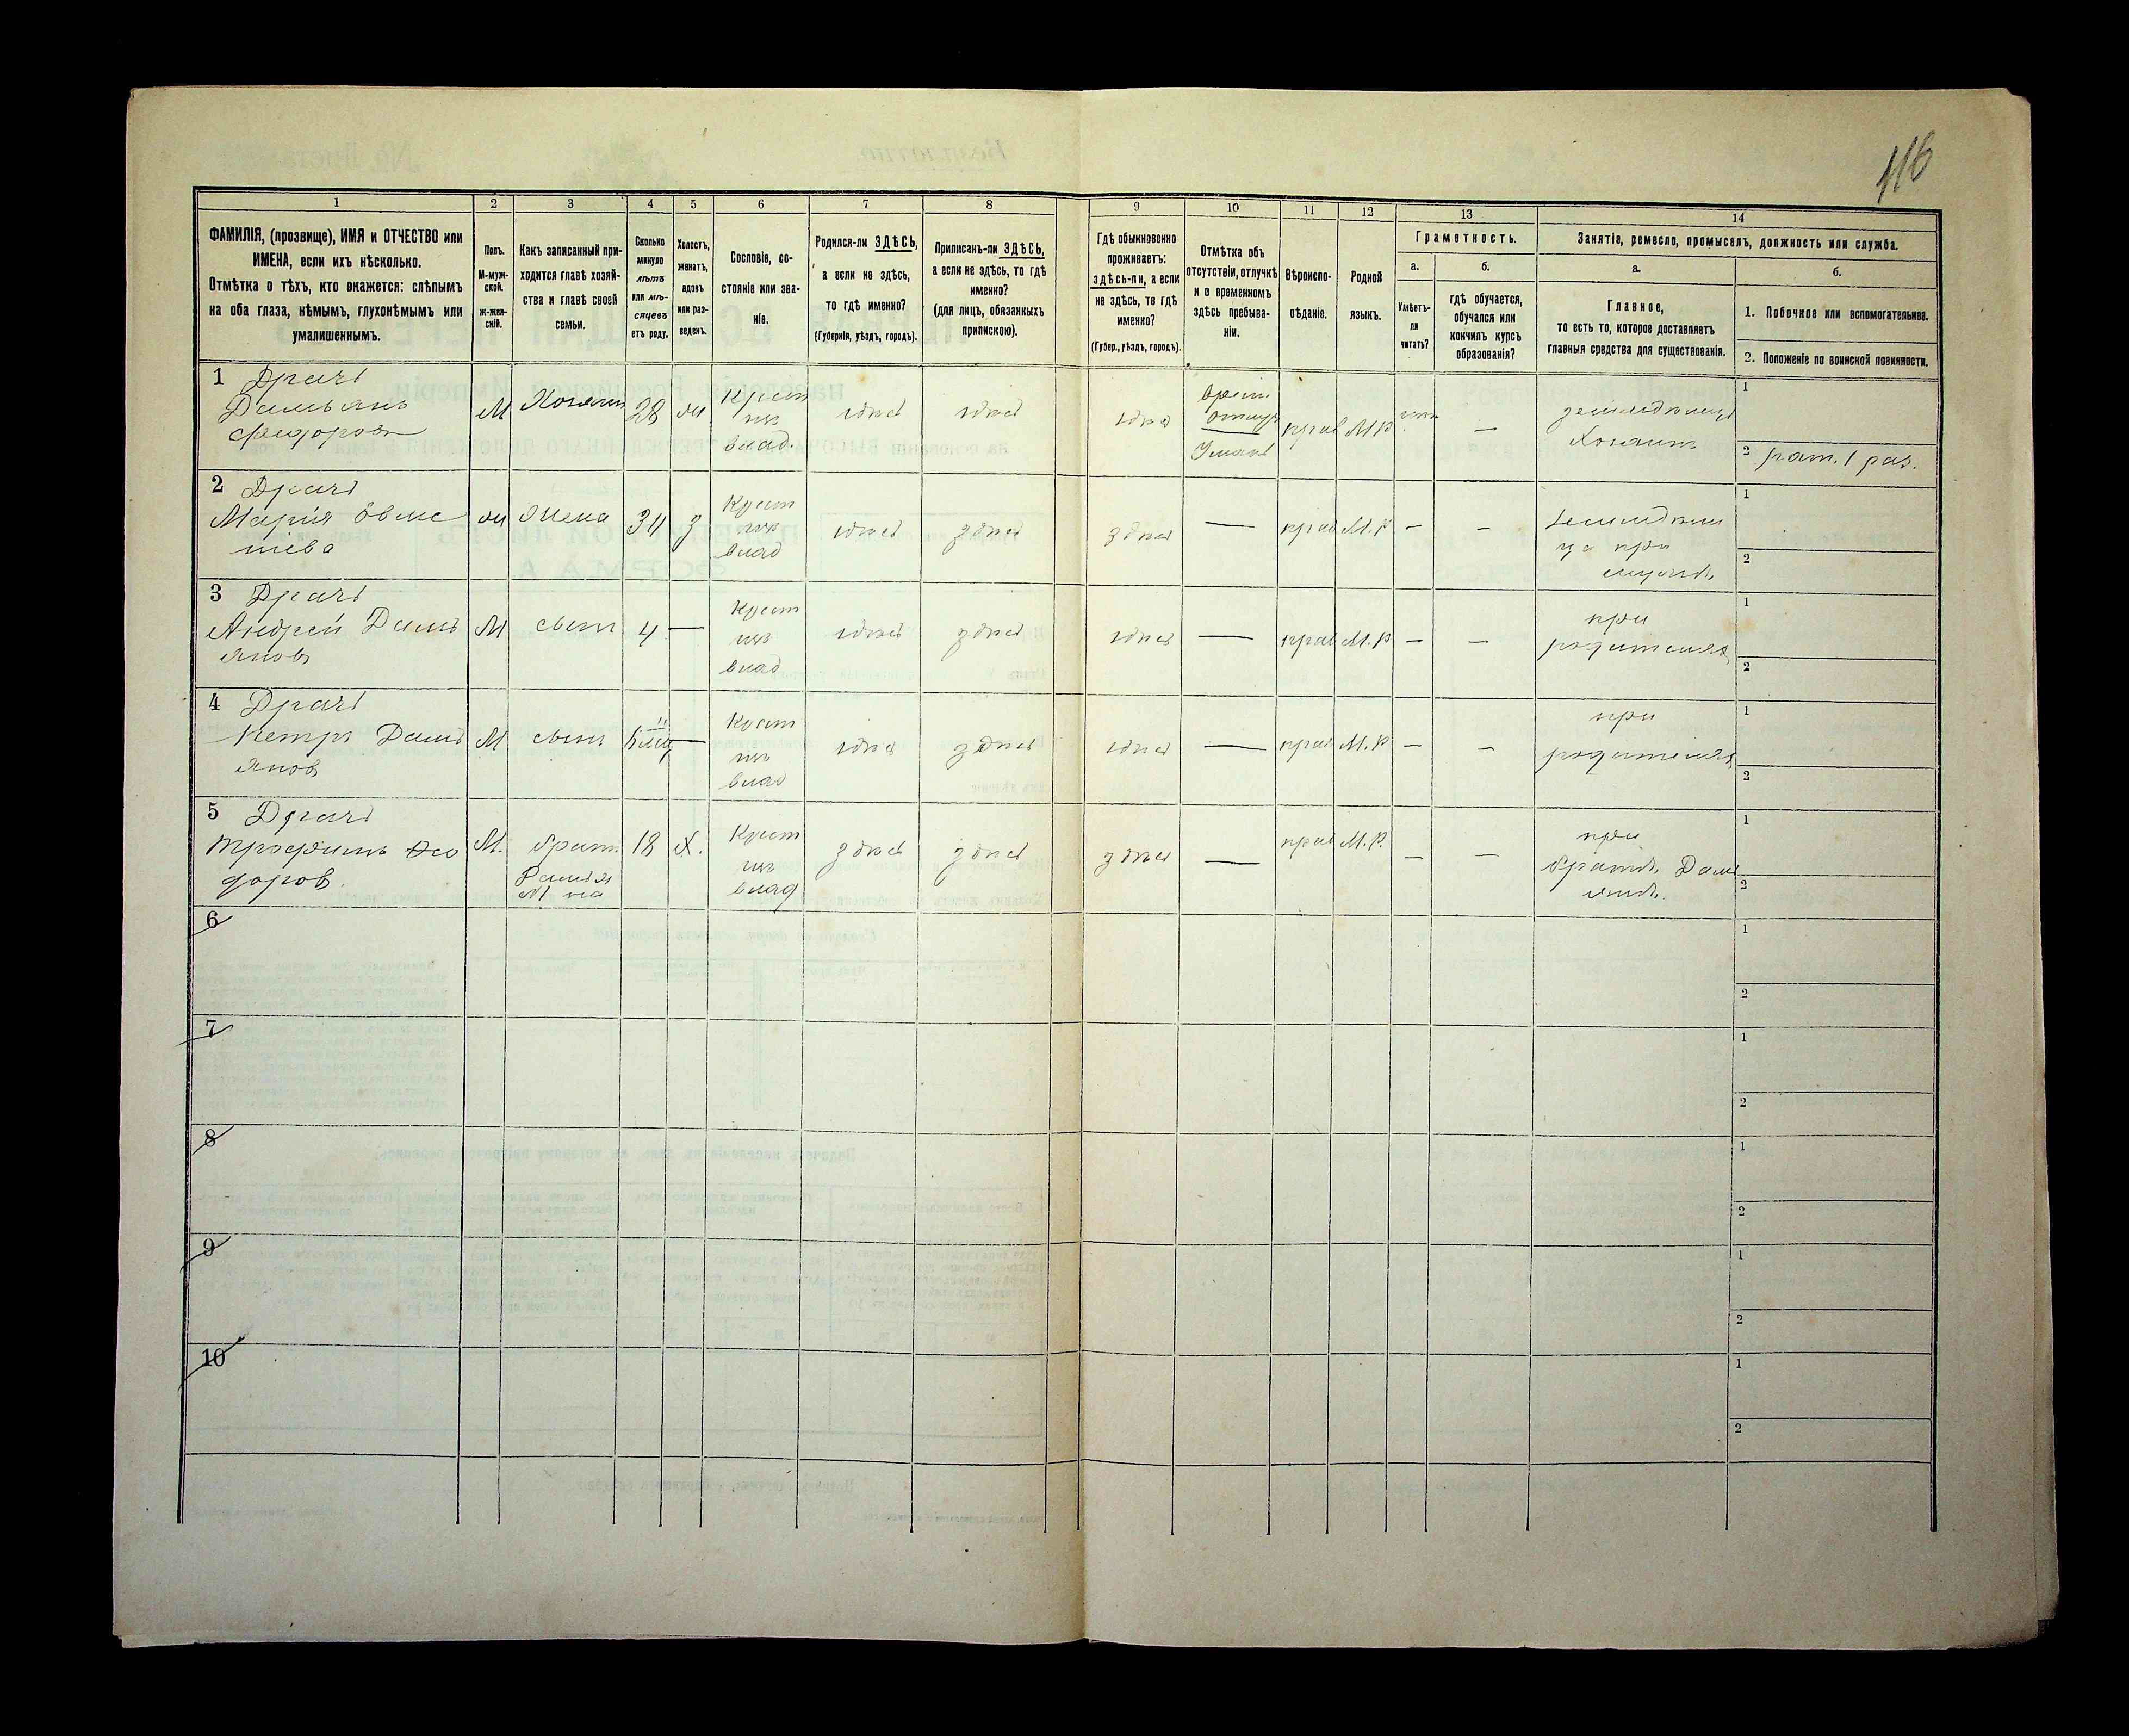 116
1 2 3 4 5 6 7 8 9 10 11 12 13 14
ФАМИЛІЯ, (прозвище), ИМЯ и ОТЧЕСТВО или
ИМЕНА, если ихъ нѣсколько.
Отмѣтка о тѣхъ, кто окажется: слѣпымъ
на оба глаза, нѣмымъ, глухонѣмымъ или
умалишеннымъ.
Полъ.
М-муж-
ской.
Ж-жен-
скій.
Какъ записанный при-
ходится главѣ хозяй-
ства и главѣ своей
семьи.
Сколько
минуло
лѣтъ
или мѣ-
сяцевъ
отъ роду.
Холостъ,
женатъ,
вдовъ
или раз-
веденъ.
Сословіе, со-
стояніе или зва-
ніе.
Родился-ли ЗДѢСЬ,
а если не здѣсь,
то гдѣ именно?
(Губернія, уѣздъ, городъ).
Приписанъ-ли ЗДѢСЬ,
а если не здѣсь, то гдѣ
именно?
(для лицъ, обязанныхъ
припискою).
Гдѣ обыкновенно
проживаетъ:
здѣсь-ли, а если
не здѣсь, то гдѣ
именно?
(Губер., уѣздъ, городъ).
Отмѣтка объ
отсутствіи, отлучкѣ
и о временномъ
здѣсь пребыва-
ніи.
Вѣроиспо-
вѣданіе.
Родной
языкъ.
Грамотность.
а.
Умѣетъ-
ли
читать?
б.
гдѣ обучается,
обучался или
кончилъ курсъ
образованія?
Занятіе, ремесло, промыселъ, должность или служба.
а.
Главное,
то есть то, которое доставляетъ
главныя средства для существованія.
б.
1. Побочное или вспомогательное.
2. Положеніе по воинской повинности.
1 Драчь
Дамьянъ
Федоровъ
М
Хозяинъ
28
Крест
изъ
влад.
здѣсь
здѣсь
здѣсь
Умань
прав
М.Р
—
Хозяинъ
1
2 рат. 1 раз.
2 Драчь
Мария
Жена
34
з
Крест
изъ
влад
здѣсь
здѣсь
здѣсь
—
прав
М.Р
—
—
ца при
1
2
3 Драчь
Андрей Дамь
яновъ
М
сынъ
4
—
Крест
изъ
влад
здѣсь
здѣсь
здѣсь
—
прав
М.Р
—
—
при
родителях
1
2
4 Драчь
Петръ Дамь
янов
М
сынъ
—
Крест
изъ
влад
здѣсь
здѣсь
здѣсь
—
прав
М.Р
—
—
при
родителях
1
2
5 Драчь
Трофимъ Фео
доров.
М.
братъ
18
х.
Крест
изъ
влад
здѣсь
здѣсь
здѣсь
—
прав
М.Р.
—
—
при
братѣ Дамь
янѣ.
1
2
6
1
2
7
1
2
8
1
2
9
1
2
10
1
2